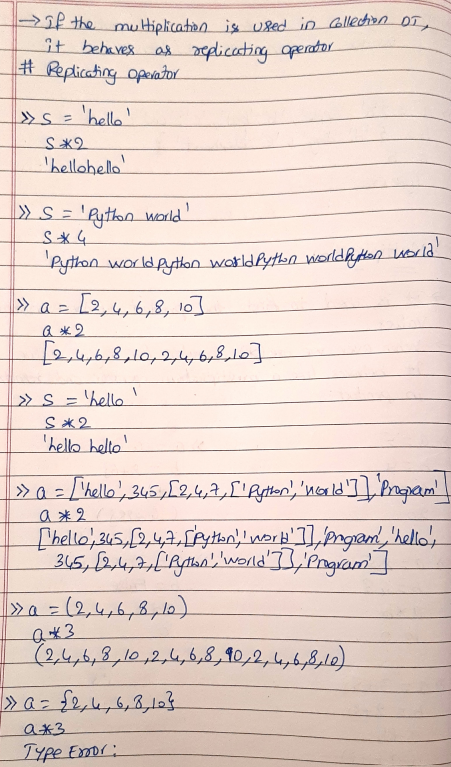 → If the multiplication is used in Collection DT,
it behaves as replicating operator
# Replicating operator
>> s = 'hello'
s*2
'hellohello'
>> s = 'Python world'
s*4
'Python worldPython worldPython worldPython world'
>> a = [2,4,6,8,10]
a*2
[2,4,6,8,10,2,4,6,8,10]
>> s = 'hello'
s*2
'hello hello'
>> a = ['hello',345,[2,4,7,['Python','world']],'Program']
a*2
['hello',345,[2,4,7,['Python','world']],'Program','hello',
345,[2,4,7,['Python','world']],'Program']
>> a = (2,4,6,8,10)
a*3
(2,4,6,8,10,2,4,6,8,10,2,4,6,8,10)
>> a = {2,4,6,8,10}
a*3
Type Error: